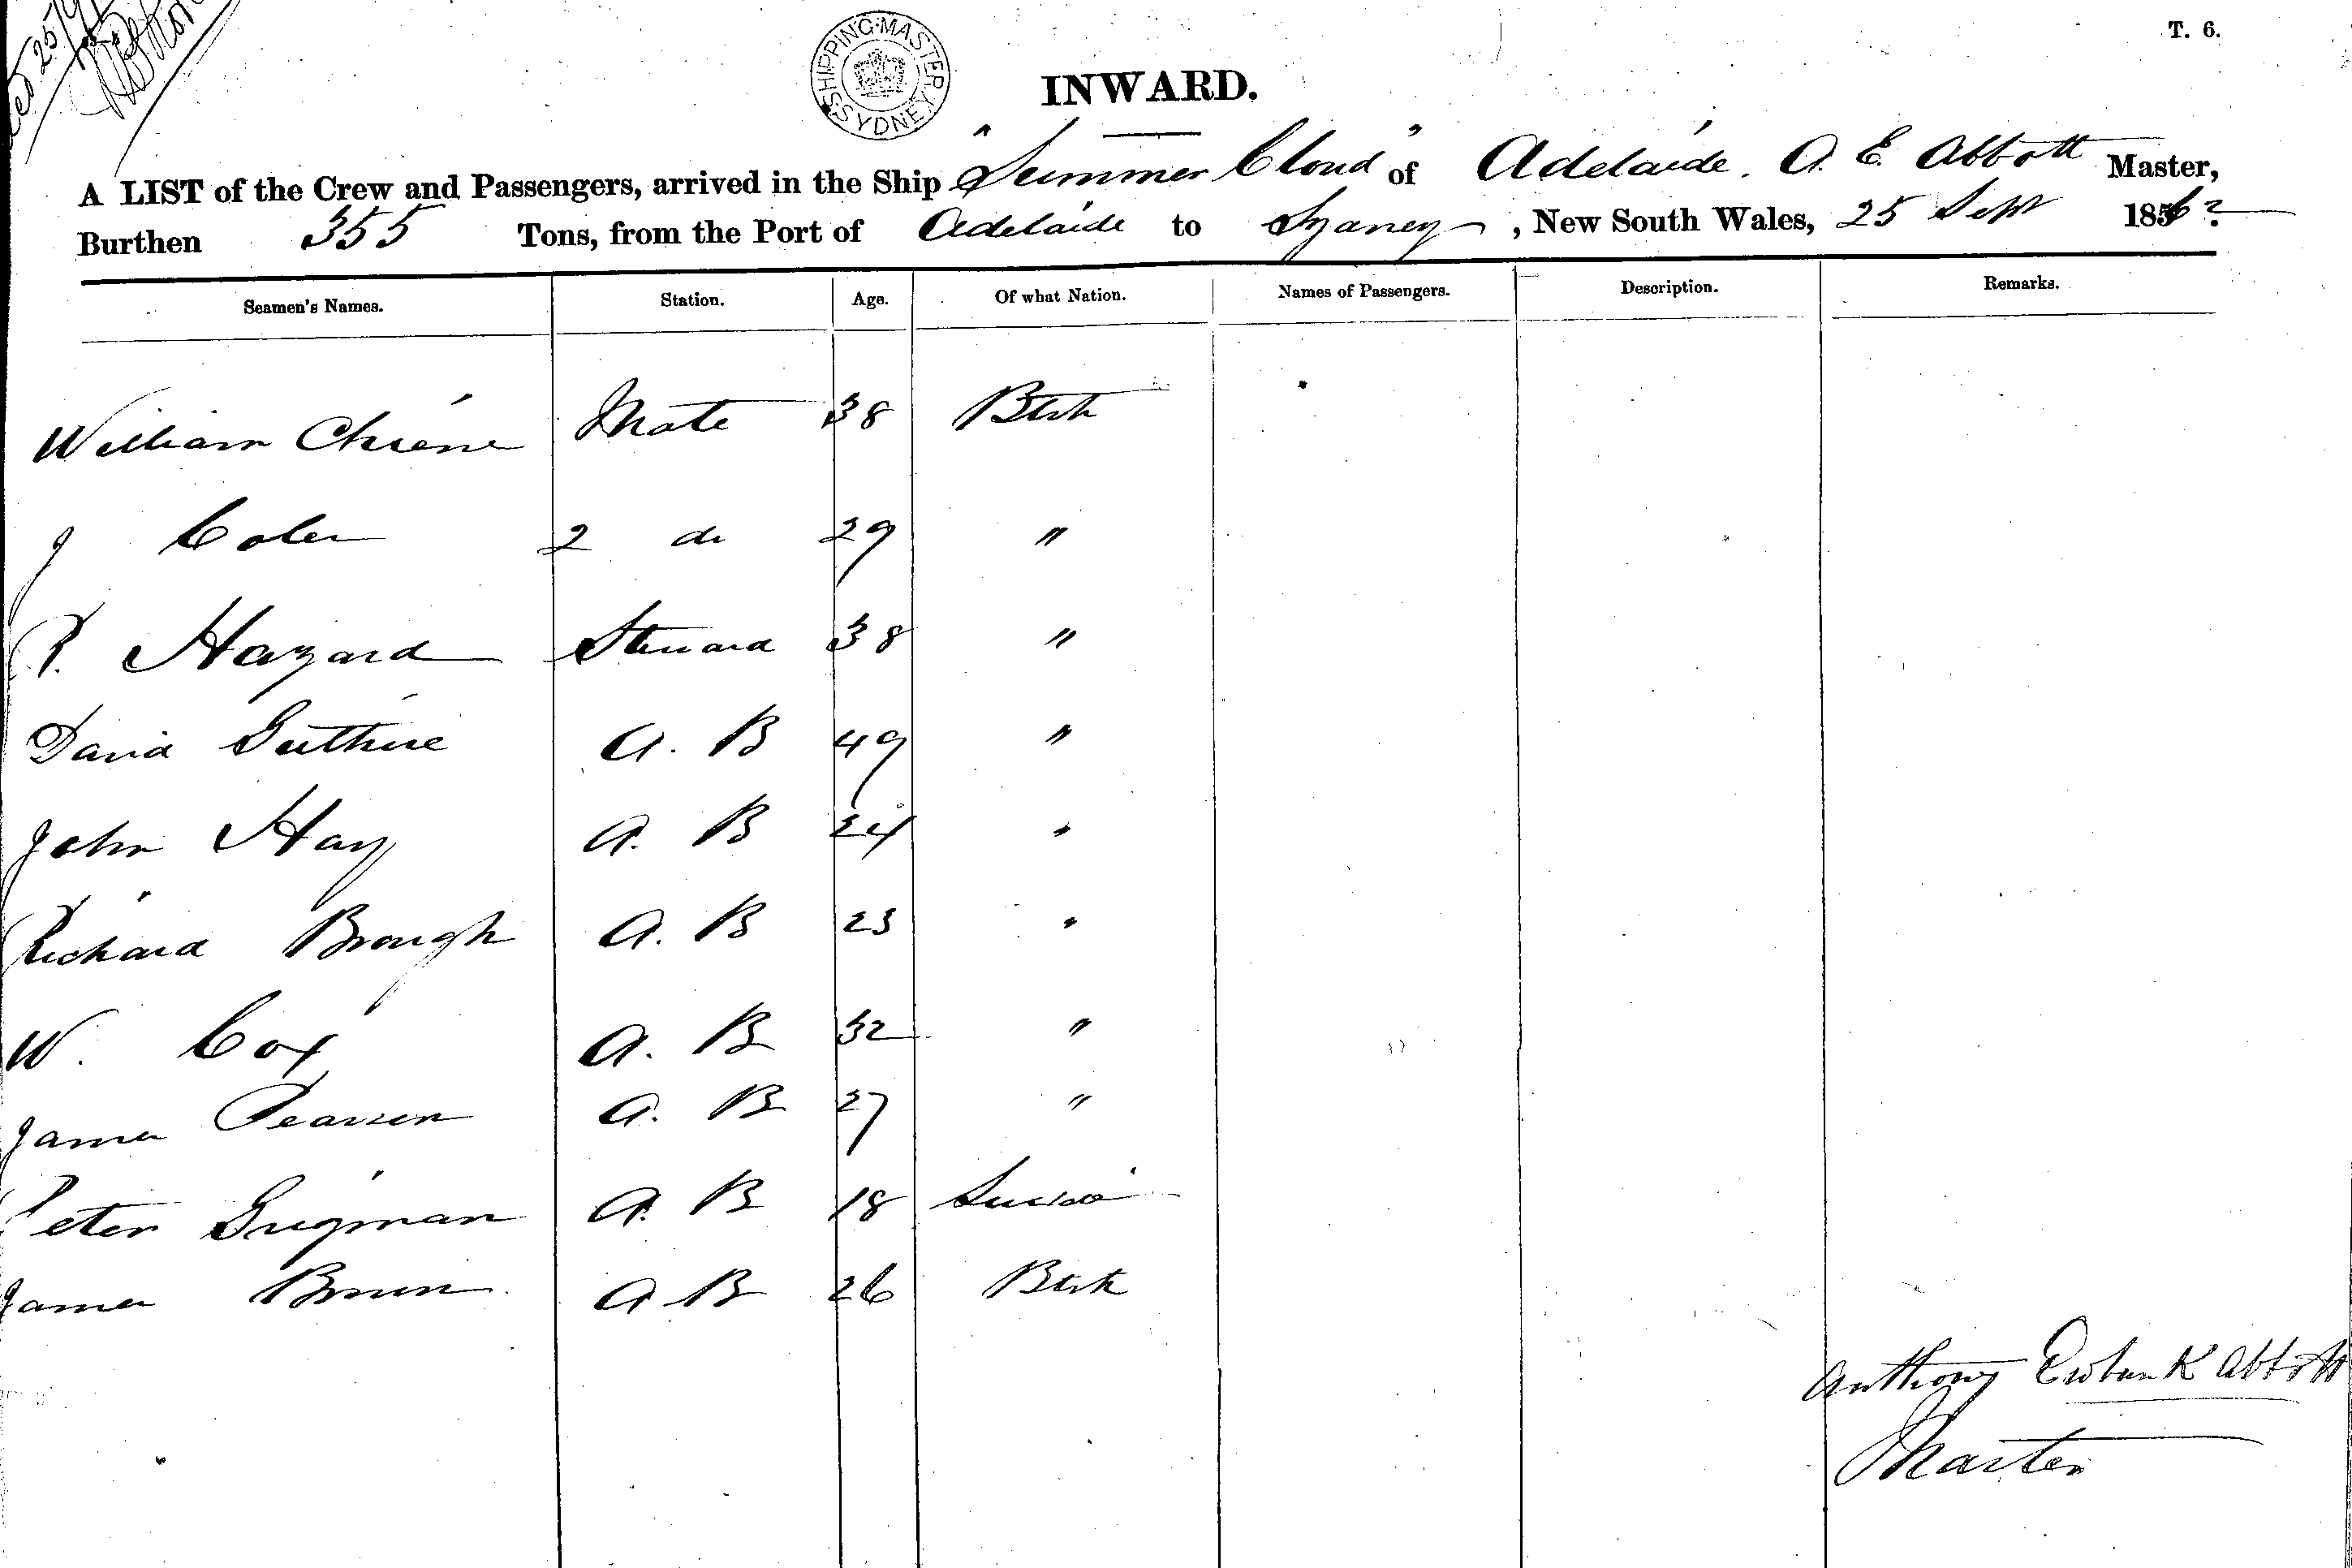 T. 6.
SHIPPING MASTER SYDNEY
INWARD.
A LIST of the Crew and Passengers, arrived in the Ship "Summer Cloud" of Adelaide. A. E. Abbott Master,
Burthen 355 Tons, from the Port of Adelaide to Sydney, New South Wales, 25 Sept 1862
Seamen's Names. Station. Age. Of what Nation. Names of Passengers. Description. Remarks.
William Chiene Mate 38 Btsh
J Coles 2 do 29 "
R. Hazard Steward 38 "
David Guthrie A. B 49 "
John Hay A. B 24 "
Richard Brough A. B 23 "
W. Cox A. B 32 "
James Pearson A. B 27 "
Peter A. B 18
James Brown A B 26 Btsh
Anthony Ewbank Abbott
Master